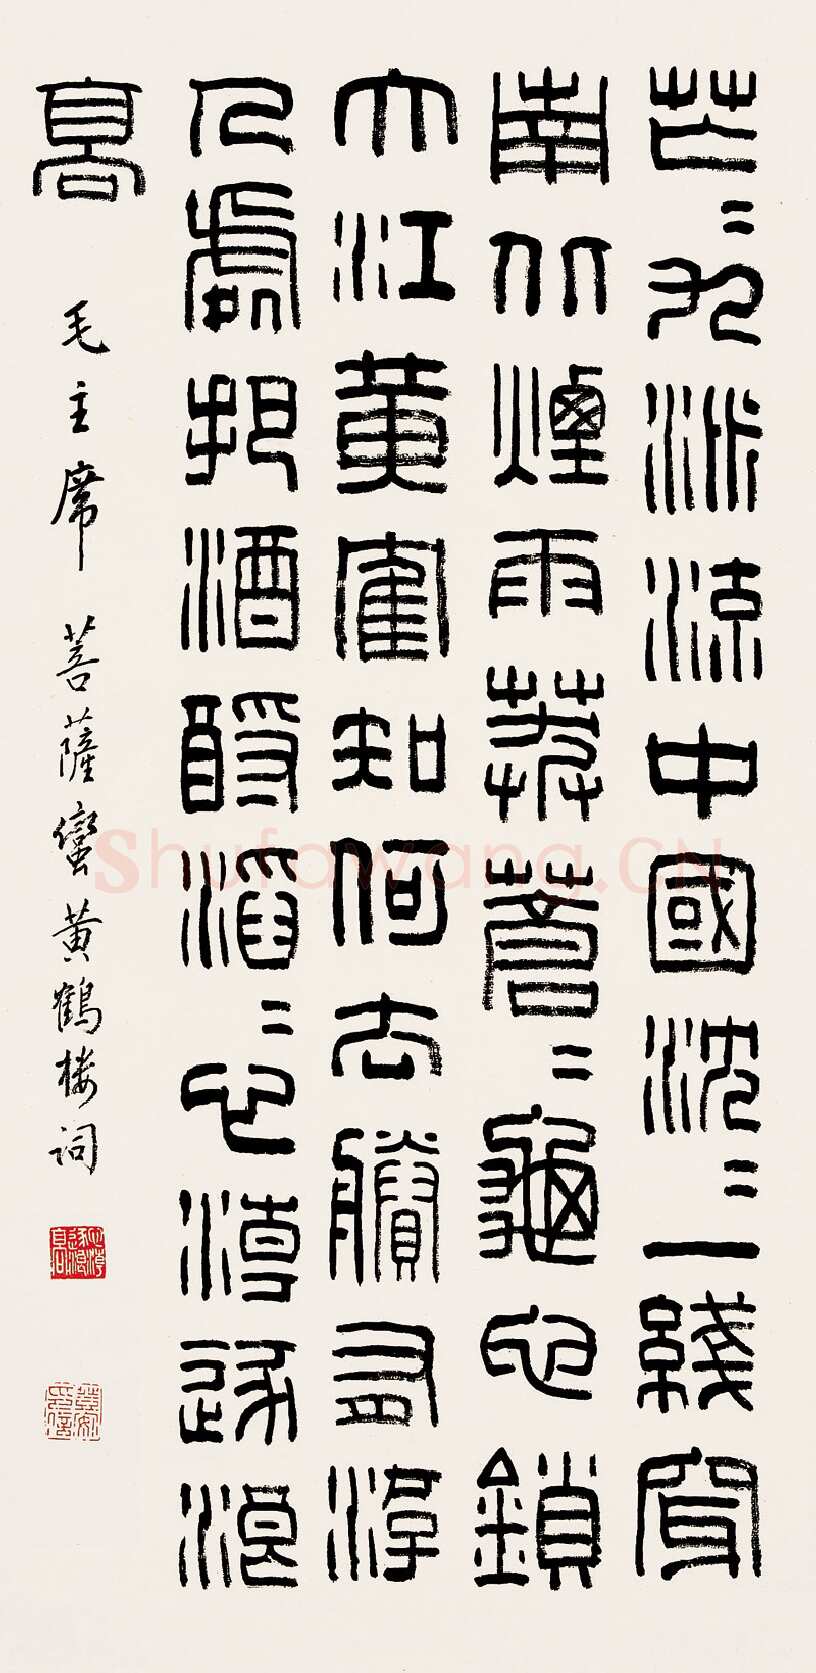 芒〻九派流中國沈〻一綫穿
南北煙雨莽蒼〻龜它鎖
大江黃隺知何去賸有游
人處把酒酹滔〻心淖逐浪
高
毛主席菩薩蠻黄鶴樓詞
Shufawang.CN